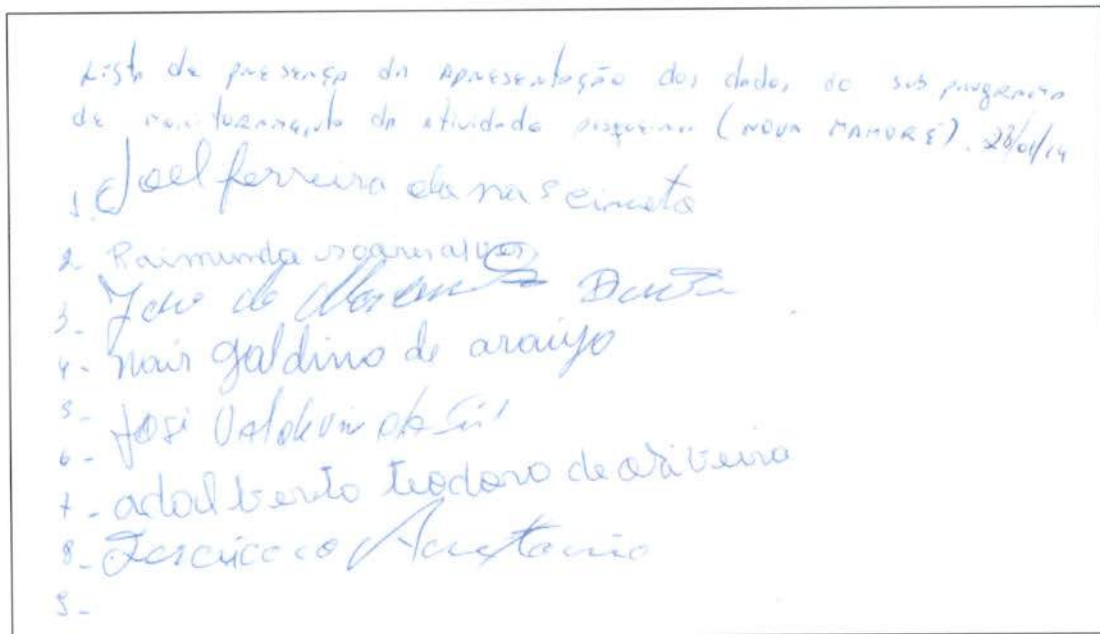 Lista de presença da Apresentação dos dados do sub programa
de monitoramento da atividade pesqueira (NOVA MAMORÉ). 28/01/14
1. Joel ferreira da nascimeto
2 Raimunda soares alves
3-
4- nair galdino de araújo
5- José Valdevin da Sil
6-
7- adalberto teodoro de oliveira
8-
9-